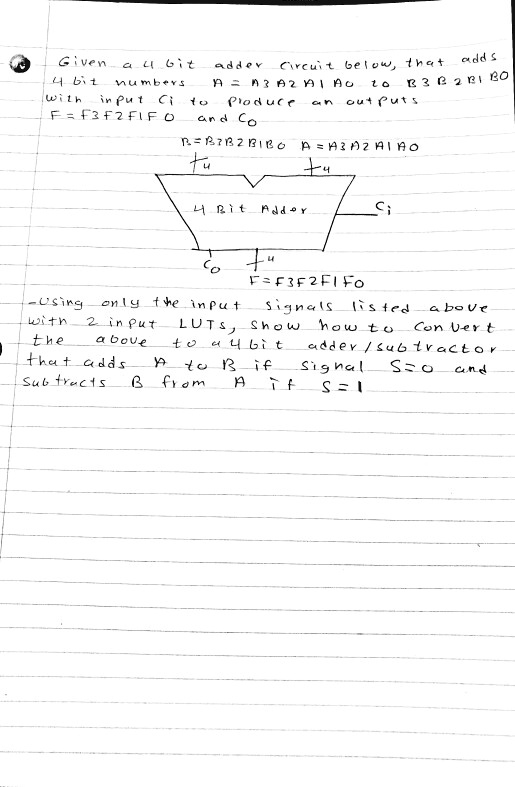 Given a 4 bit adder circuit below, that adds
4 bit numbers A = A3 A2 A1 A0 to B3 B2 B1 B0
with input Ci to produce an outputs
F = F3 F2 F1 F0 and Co
B = B3 B2 B1 B0 A = A3 A2 A1 A0
4 4
4 Bit Adder Ci
Co 4
F = F3 F2 F1 F0
- Using only the input signals listed above
with 2 input LUTs, show how to convert
the above to a 4 bit adder / subtractor
that adds A to B if signal S=0 and
subtracts B from A if S=1